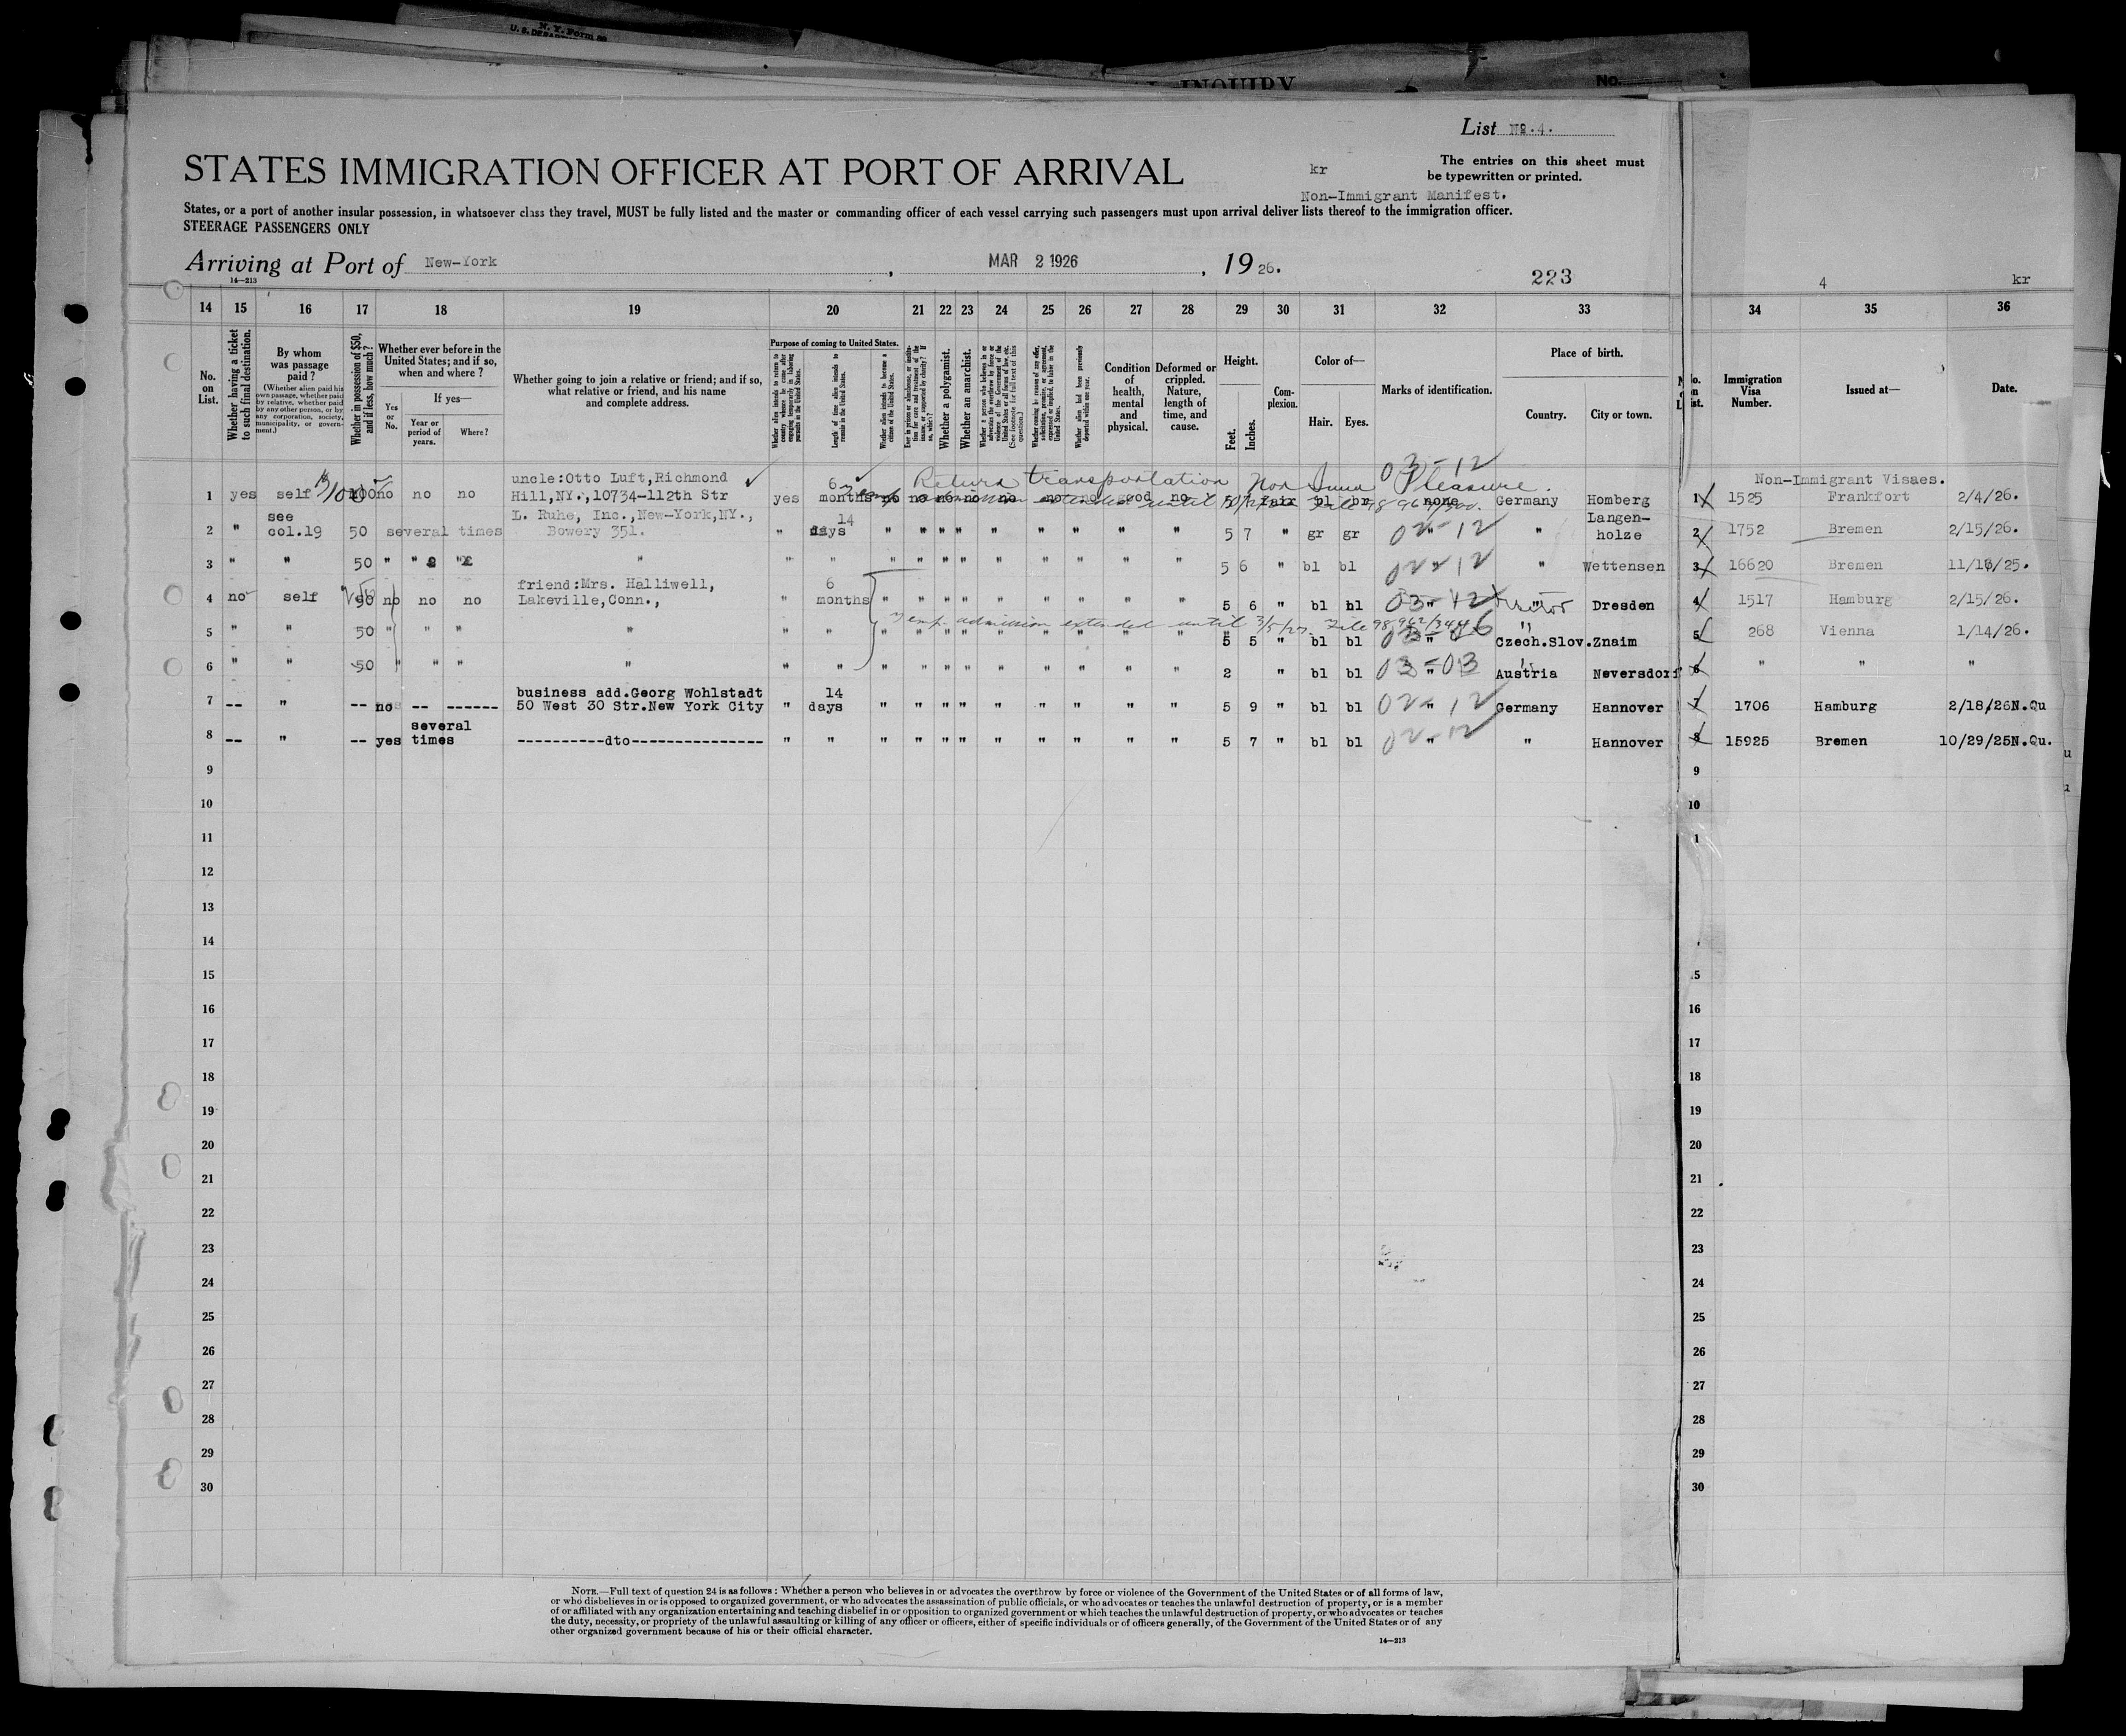 N. Y. Form
U. S. DEPARTMENT
INQUIRY
No.
List No. 4.
STATES IMMIGRATION OFFICER AT PORT OF ARRIVAL
kr
The entries on this sheet must
be typewritten or printed.
Non-Immigrant Manifest.
States, or a port of another insular possession, in whatsoever class they travel, MUST be fully listed and the master or commanding officer of each vessel carrying such passengers must upon arrival deliver lists thereof to the immigration officer.
STEERAGE PASSENGERS ONLY
Arriving at Port of New-York, MAR 2 1926, 19 26.
14—213
223
4 kr
14 15 16 17 18 19 20 21 22 23 24 25 26 27 28 29 30 31 32 33 34 35 36
No. on List.
Whether having a ticket to such final destination.
By whom was passage paid?
(Whether alien paid his own passage, whether paid by relative, whether paid by any other person, or by any corporation, society, municipality, or government.)
Whether in possession of $50, and if less, how much?
Whether ever before in the United States; and if so, when and where?
Yes or No.
If yes—
Year or period of years.
Where?
Whether going to join a relative or friend; and if so, what relative or friend, and his name and complete address.
Purpose of coming to United States.
Whether alien intends to return to country whence he came after engaging temporarily in laboring pursuits in the United States.
Length of time alien intends to remain in the United States.
Whether alien intends to become a citizen of the United States.
Ever in prison or almshouse, or institution for care and treatment of the insane, or supported by charity? If so, which?
Whether a polygamist.
Whether an anarchist.
Whether a person who believes in or advocates the overthrow by force or violence of the Government of the United States or all forms of law, etc. (See footnote for full text of this question.)
Whether coming by reason of any offer, solicitation, promise, or agreement, expressed or implied, to labor in the United States.
Whether alien had been previously deported within one year.
Condition of health, mental and physical.
Deformed or crippled. Nature, length of time, and cause.
Height.
Feet. Inches.
Complexion.
Color of—
Hair. Eyes.
Marks of identification.
Place of birth.
Country. City or town.
No. on List.
Immigration Visa Number.
Issued at—
Date.
Return transportation Non Immi Pleasure.
03-12
Non-Immigrant Visaes.
uncle:Otto Luft,Richmond 6
1 yes self 100 no no no Hill,NY.,10734-112th Str yes months no no no no no no no good no 5 fair bl br none Germany Homberg 1 1525 Frankfort 2/4/26.
see L. Ruhe, Inc.,New-York,NY., 14 Langen-
2 " col.19 50 several times Bowery 351. " days " " " " " " " " " 5 7 " gr gr 02-12 " holze 2 1752 Bremen 2/15/26.
3 " " 50 " " " " " " " " " " " " " " " 5 6 " bl bl 02-12 " Wettensen 3 16620 Bremen 11/16/25.
friend:Mrs. Halliwell, 6
4 no self 50 no no no Lakeville,Conn., " months " " " " " " " " " 5 6 " bl bl 03-12 " Dresden 4 1517 Hamburg 2/15/26.
Temp. admission extended until 3/5/27. File 98962/344
5 " " 50 " " " " " " " " " " " " " " 5 5 " bl bl 03-06 Czech.Slov. Znaim 5 268 Vienna 1/14/26.
6 " " 50 " " " " " " " " " " " " " " " 2 " bl bl 03-03 Austria Neversdorf 6 " " "
business add.Georg Wohlstadt 14
7 -- " -- no -- ------ 50 West 30 Str.New York City " days " " " " " " " " " 5 9 " bl bl 02-12 Germany Hannover 7 1706 Hamburg 2/18/26N.Qu
several
8 -- " -- yes times ----------dto--------------- " " " " " " " " " " " 5 7 " bl bl 02-12 " Hannover 8 15925 Bremen 10/29/25N.Qu.
9 9
10 10
11 1
12
13
14
15 5
16 16
17 17
18 18
19 19
20 20
21 21
22 22
23 23
24 24
25 25
26 26
27 27
28 28
29 29
30 30
NOTE.—Full text of question 24 is as follows: Whether a person who believes in or advocates the overthrow by force or violence of the Government of the United States or of all forms of law,
or who disbelieves in or is opposed to organized government, or who advocates the assassination of public officials, or who advocates or teaches the unlawful destruction of property, or is a member
of or affiliated with any organization entertaining and teaching disbelief in or opposition to organized government or which teaches the unlawful destruction of property, or who advocates or teaches
the duty, necessity, or propriety of the unlawful assaulting or killing of any officer or officers, either of specific individuals or of officers generally, of the Government of the United States or of any
other organized government because of his or their official character.
14—213